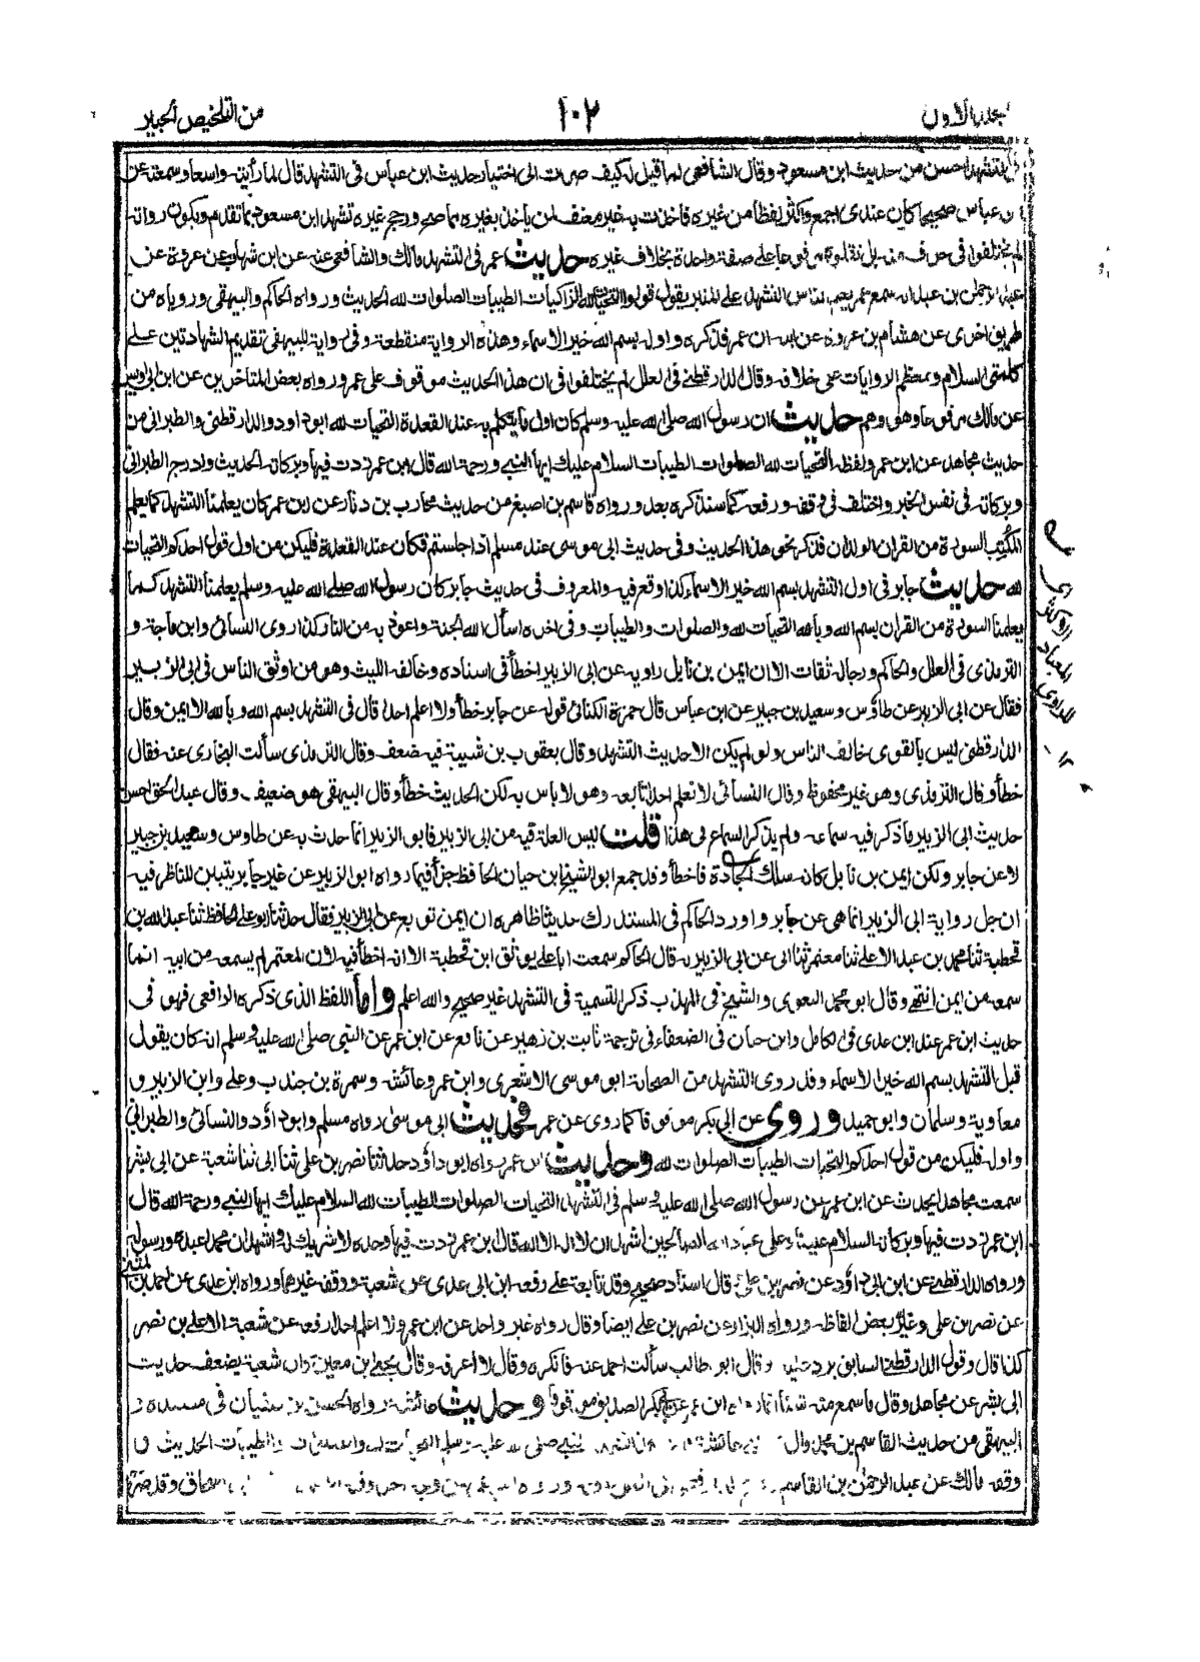 جلد الاول
١٠٢
من التلخيص الحبير
التشهد احسن من حديث ابن مسعود وقال الشافعي لما قيل له كيف صرت الى اختيار حديث ابن عباس في التشهد قال لما رأيته واسعا وسمعته عن
ابن عباس صحيحا كان عندي اجمع واكثر لفظا من غيره فاخذت به غير معنف لمن ياخذ بغيره مما صح ورجح غيره تشهد ابن مسعود بما تقدم وبكون رواته
لم يختلفوا في حرف منه بل نقلوه مرفوعا على صفة واحدة بخلاف غيره حديث عمر في التشهد مالك والشافعي عنه عن ابن شهاب عن عروة عن
عبد الرحمن بن عبد انه سمع عمر يعلم الناس التشهد على المنبر يقول قولوا التحيات لله الزاكيات الطيبات الصلوات لله الحديث ورواه الحاكم والبيهقي وروياه من
طريق اخرى عن هشام بن عروة عن ابيه ان عمر فذكره واوله بسم الله خير الاسماء وهذه الرواية منقطعة وفي رواية للبيهقي تقديم الشهادتين على
كلمتي السلام ومعظم الروايات على خلافه وقال الدارقطني في العلل لم يختلفوا في ان هذا الحديث موقوف على عمر ورواه بعض المتاخرين عن ابن ابي اويس
عن مالك مرفوعا وهو وهم حديث ان رسول الله صلى الله عليه وسلم كان اول ما يتكلم به عند القعدة التحيات لله ابو داود والدارقطني والطبراني من
حديث مجاهد عن ابن عمر ولفظه التحيات لله الصلوات الطيبات السلام عليك ايها النبي ورحمة الله قال ابن عمر زدت فيها وبركاته الحديث وادرج الطبراني
وبركاته في نفس الخبر واختلف في وقفه ورفعه كما سنذكره بعد ورواه قاسم بن اصبغ من حديث محارب بن دثار عن ابن عمر كان يعلمنا التشهد كما يعلم
المكتب السورة من القران الولدان فذكر نحو هذا الحديث وفي حديث ابي موسى عند مسلم اذا جلستم فكان عند القعدة فليكن من اول قول احدكم التحيات
لله حديث جابر في اول التشهد بسم الله خير الاسماء كذا وقع فيه والمعروف في حديث جابر كان رسول الله صلى الله عليه وسلم يعلمنا التشهد كما
يعلمنا السورة من القران بسم الله وبالله التحيات لله والصلوات والطيبات وفي اخره اسأل الله الجنة واعوذ به من النار كذا روى النسائي وابن ماجة و
الترمذي في العلل والحاكم ورجاله ثقات الا ان ايمن بن نابل راويه عن ابي الزبير اخطأ في اسناده وخالفه الليث وهو من اوثق الناس في ابي الزبير
فقال عن ابي الزبير عن طاؤس وسعيد بن جبير عن ابن عباس قال حمزة الكناني قوله عن جابر خطأ ولا اعلم احدا قال في التشهد بسم الله وبالله الا ايمن وقال
الدارقطني ليس بالقوي خالف الناس ولو لم يكن الا حديث التشهد وقال يعقوب بن شيبة فيه ضعف وقال الترمذي سألت البخاري عنه فقال
خطأ وقال الترمذي وهو غير محفوظ وقال النسائي لا نعلم احدا تابعه وهو لا باس به لكن الحديث خطأ وقال البيهقي هو ضعيف وقال عبد الحق احسن
حديث ابي الزبير ما ذكر فيه سماعه ولم يذكر السماع في هذا قلت ليس العلة فيه من ابي الزبير فابو الزبير انما حدث به عن طاوس وسعيد بن جبير
لا عن جابر ولكن ايمن بن نابل كانه سلك الجادة فاخطأ وقد جمع ابو الشيخ ابن حيان الحافظ جزأ فيما رواه ابو الزبير عن غير جابر يتبين للناظر فيه
ان جل رواية ابي الزبير انما هي عن جابر واورد الحاكم في المستدرك حديثا ظاهره ان ايمن توبع عن ابي الزبير فقال حدثنا ابو علي الحافظ ثنا عبد الله بن
قحطبة ثنا محمد بن عبد الاعلى ثنا معتمر ثنا ابي عن ابي الزبير به قال الحاكم سمعت ابا علي يوثق ابن قحطبة الا انه اخطأ فيه لان المعتمر لم يسمعه من ابيه انما
سمعه من ايمن انتهى وقال ابو محمد البغوي والشيخ في المهذب ذكر التسمية في التشهد غير صحيح والله اعلم واما اللفظ الذي ذكره الرافعي فهو في
حديث ابن عمر عند ابن عدي في الكامل وابن حبان في الضعفاء في ترجمة ثابت بن زهير عن نافع عن ابن عمر عن النبي صلى الله عليه وسلم انه كان يقول
قبل التشهد بسم الله خير الاسماء وقد روى التشهد من الصحابة ابو موسى الاشعري وابن عمر وعائشة وسمرة بن جندب وعلي وابن الزبير و
معاوية وسلمان وابو حميد وروي عن ابي بكر موقوفا كما روى عن عمر فحديث ابي موسى رواه مسلم وابو داود والنسائي والطبراني
واوله فليكن من قول احدكم التحيات الطيبات الصلوات لله وحديث ابن عمر رواه ابو داؤد حدثنا نصر بن علي ثنا ابي ثنا شعبة عن ابي بشر
سمعت مجاهدا يحدث عن ابن عمر عن رسول الله صلى الله عليه وسلم في التشهد التحيات الصلوات الطيبات لله السلام عليك ايها النبي ورحمة الله قال
ابن عمر زدت فيها وبركاته السلام علينا وعلى عباد الله الصالحين اشهد ان لا اله الا الله قال ابن عمر زدت فيها وحده لا شريك له واشهد ان محمدا عبده ورسوله
ورواه الدارقطني عن ابن ابي داؤد عن نصر بن علي قال اسناد صحيح وقد تابعه على رفعه ابن ابي عدي عن شعبة ووقفه غيرهما ورواه ابن عدي عن احمد بن المثنى
عن نصر بن علي وغير بعض الفاظه ورواه البزار عن نصر بن علي ايضا وقال رواه غير واحد عن ابن عمر ولا اعلم احدا رفعه عن شعبة الا علي بن نصر
كذا قال وقول الدارقطني السابق يرد عليه وقال ابو طالب سألت احمد عنه فانكره وقال لا اعرفه وقال يحيى بن معين كان شعبة يضعف حديث
ابي بشر عن مجاهد وقال ما سمع منه شيئا انما رواه ابن عمر عن ابي بكر الصديق موقوفا وحديث عائشة رواه الحسن بن سفيان في مسنده و
البيهقي من حديث القاسم بن محمد قال عائشة التحيات لله والصلوات والطيبات الحديث و
وقفه مالك عن عبد الرحمن بن القاسم